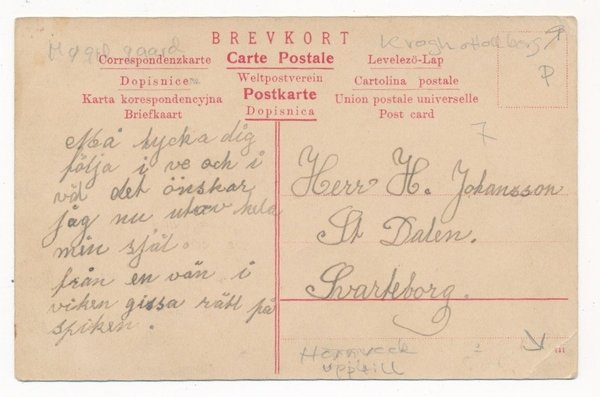 BREVKORT
Correspondenzkarte Carte Postale Levelező-Lap
Dopisnice Weltpostverein Cartolina postale
Karta korespondencyjna Postkarte Union postale universelle
Briefkaart Dopisnica Post card
Må lycka dig
följa i ve och i
väl det önskar
jag nu utav hela
min själ.
från en vän i
viken gissa rätt på
spiken.
7
Herr H. Johansson
St Dalen.
Svarteborg.
P
upptill